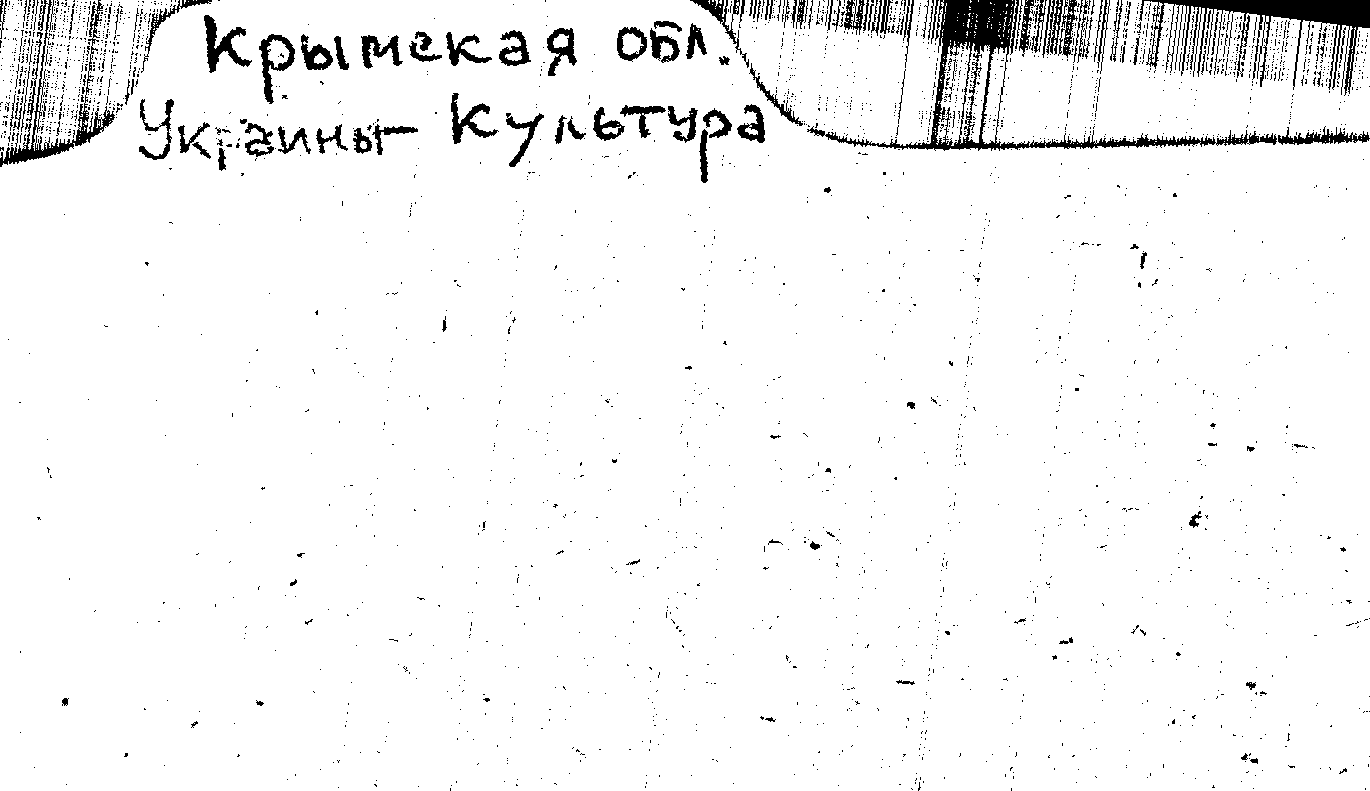 Крымская обл.
Украины - Культура